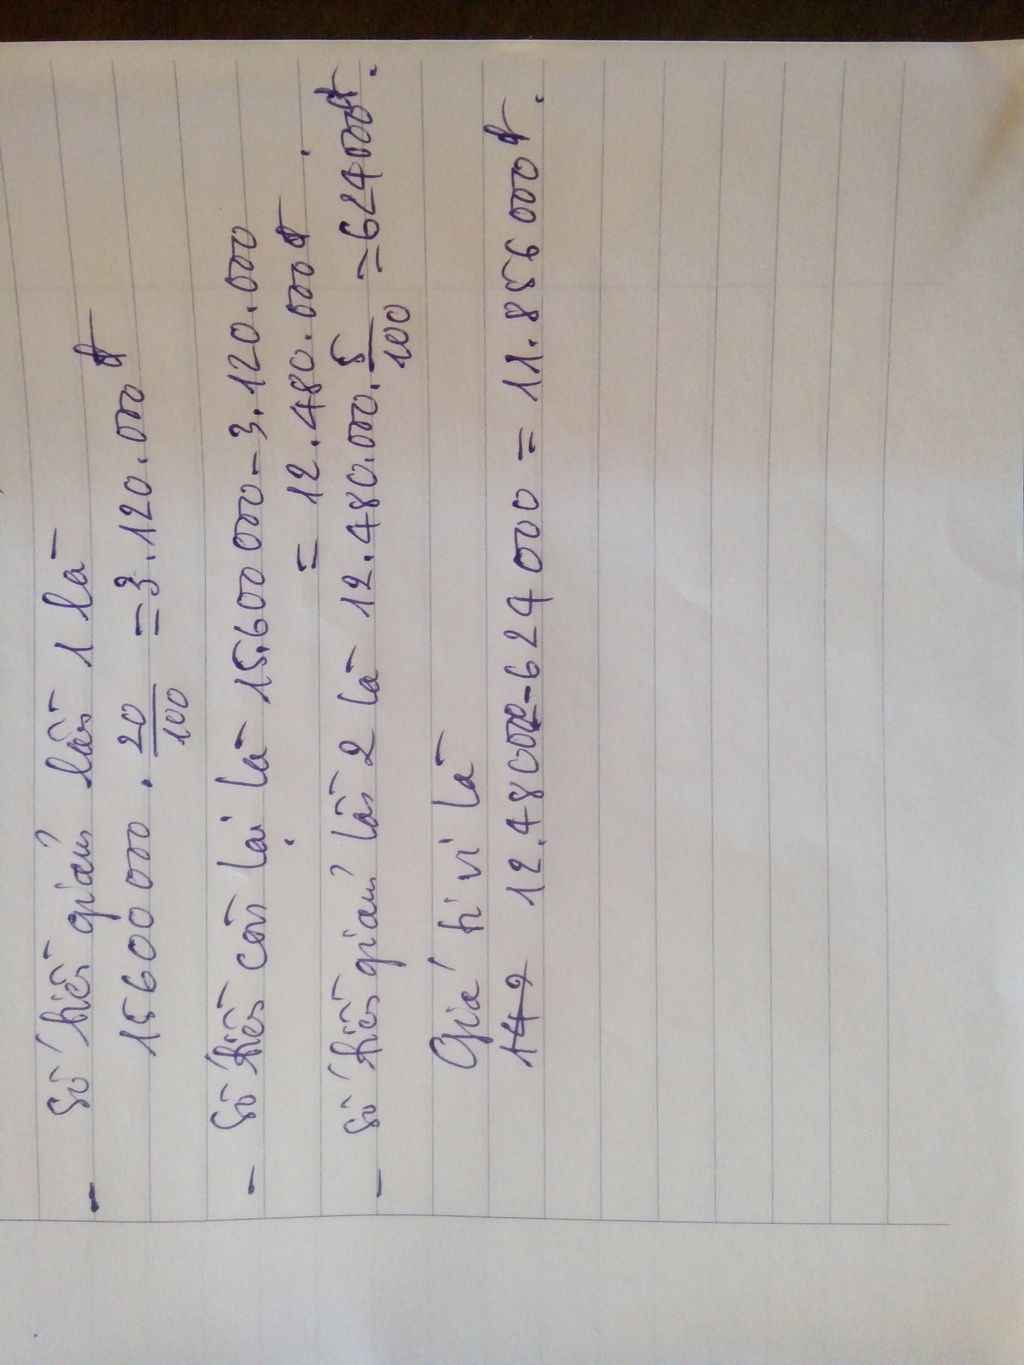 - Số tiền giảm lần 1 là
15600000 . 20/100 = 3.120.000đ
- Số tiền còn lại là 15.600000-3.120.000
= 12.480.000đ.
- Số tiền giảm lần 2 là 12.480.000. 5/100 =624000đ.
Giá ti vi là
12.480000-624000 = 11.856000đ.